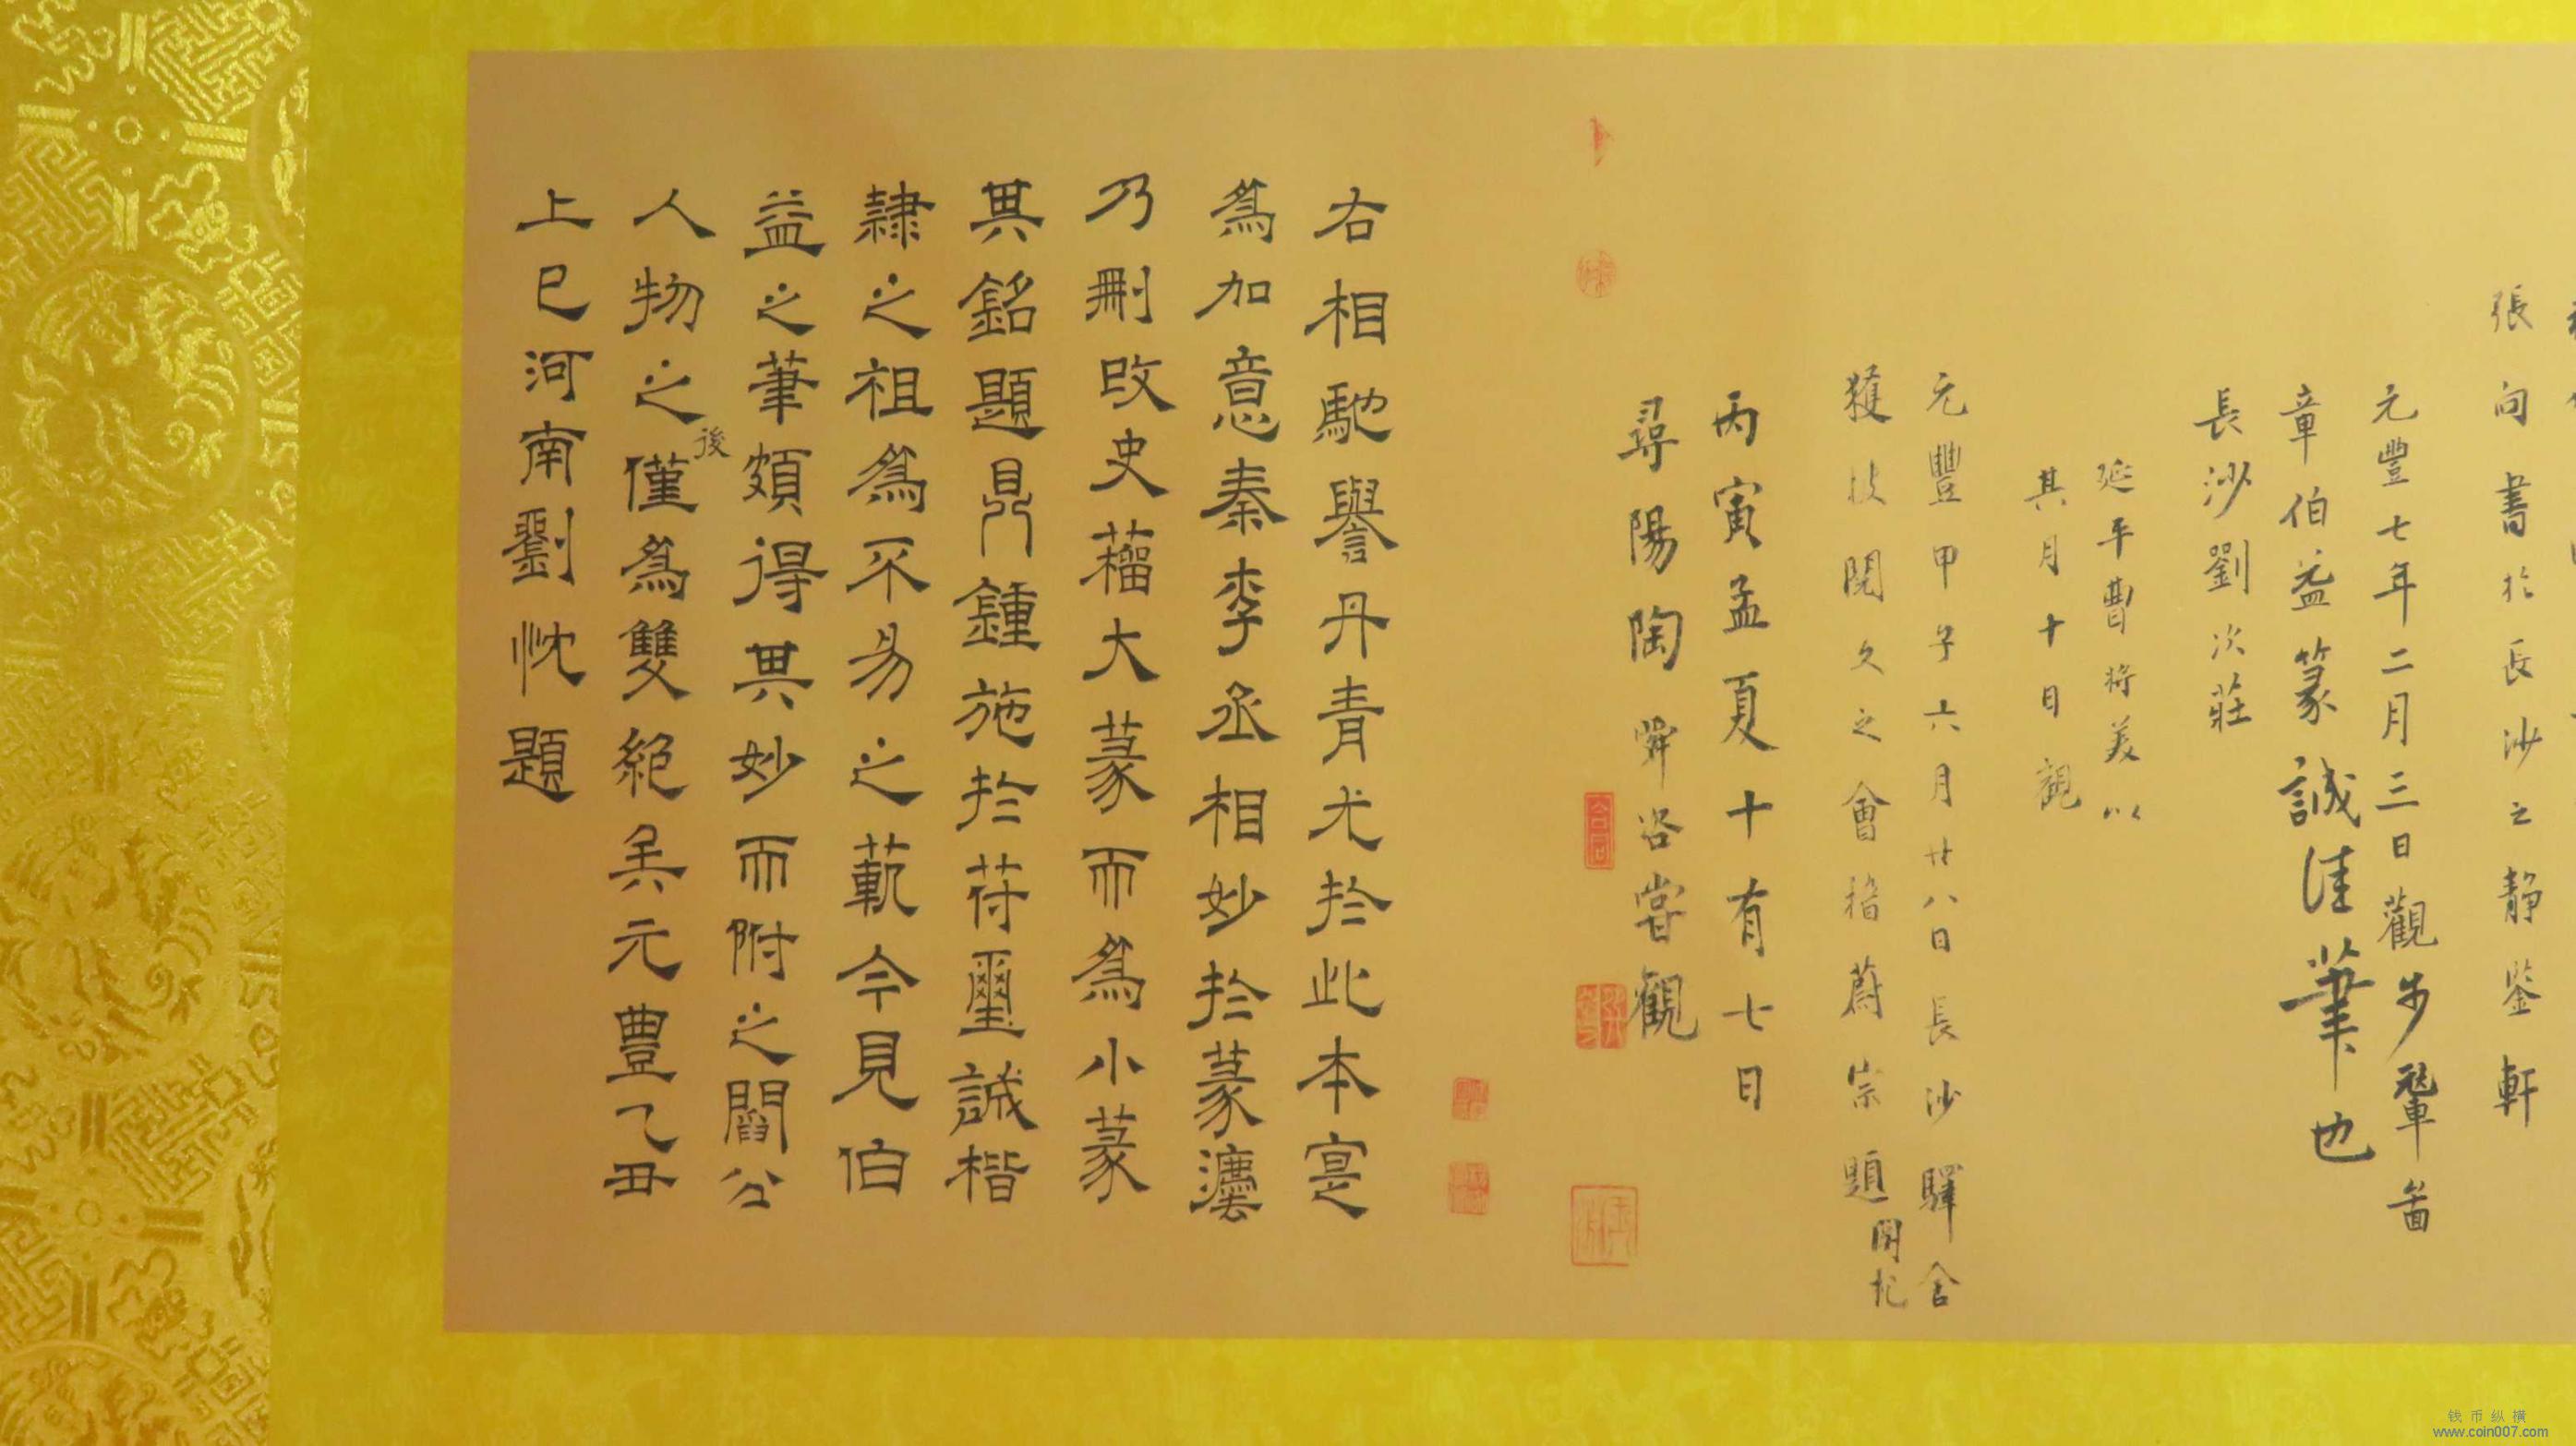 張向書於長沙之靜鑒軒
元豐七年二月三日觀步輦啚
章伯益篆誠佳筆也
長沙劉次莊
延平曹將美以
其月十日觀
元豐甲子六月廿八日長沙驛舍
獲披閱久之會稽蔚宗題
開托
丙寅孟夏十有七日
尋陽陶舜咨嘗觀
合同
右相馳譽丹青尤於此本寔
為加意秦李丞相妙於篆灋
乃刪改史籒大篆而為小篆
其銘題鼎鍾施於苻璽誠楷
隸之祖為不易之範今見伯
益之筆頗得其妙而附之閻公
人物之後僅為雙絕矣元豊乙丑
上巳河南劉忱題
钱币纵横
www.coin007.com